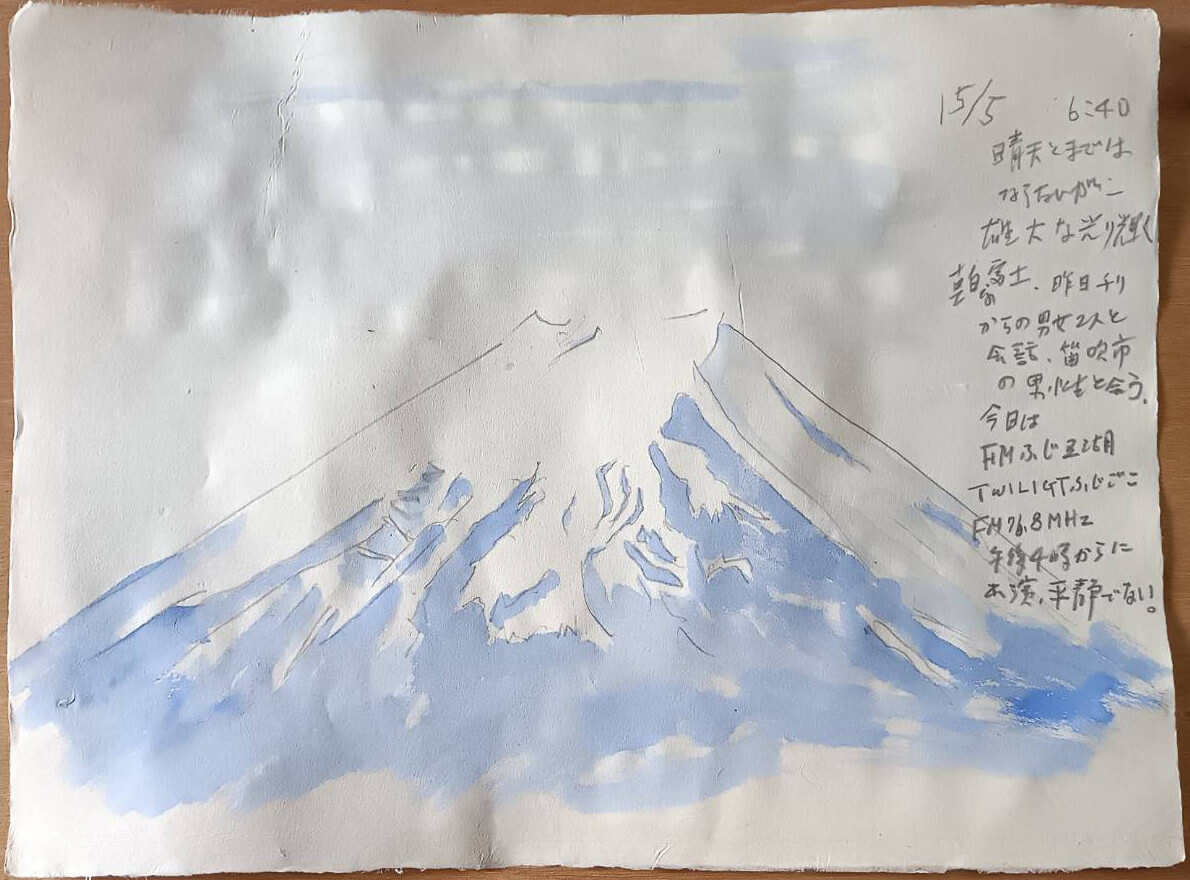 15/5 6:40
晴天とまでは
ならないが
雄大な光り輝く
富士、昨日チリ
からの男女2人と
会話、笛吹市
の男性と会う。
今日は
FMふじ五湖
TWILIGTふじごこ
FM76.8MHz
午後4時からに
出演、平静でない。